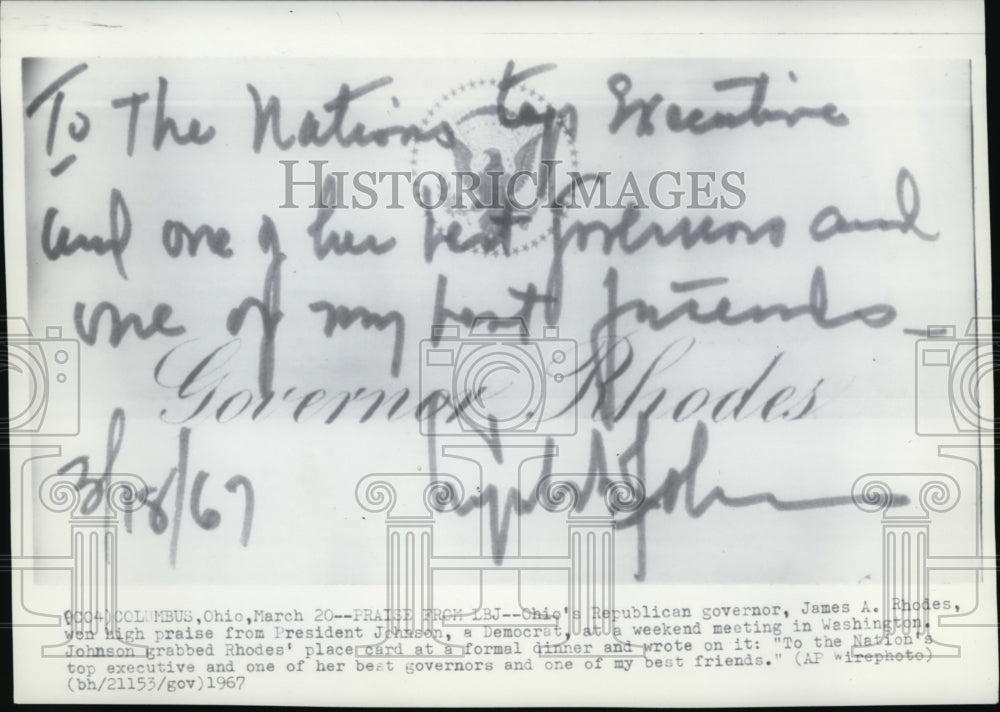 To The Nations top Executive
HISTORIC IMAGES
and one of her best Governors and
one of my best friends —
Governor Rhodes
3/18/67
Lyndon B. Johnson
(CC04)COLUMBUS,Ohio,March 20--PRAISE FROM LBJ--Ohio's Republican governor, James A. Rhodes,
won high praise from President Johnson, a Democrat, at a weekend meeting in Washington.
Johnson grabbed Rhodes' place card at a formal dinner and wrote on it: "To the Nation's
top executive and one of her best governors and one of my best friends." (AP wirephoto)
(bh/21153/gov)1967